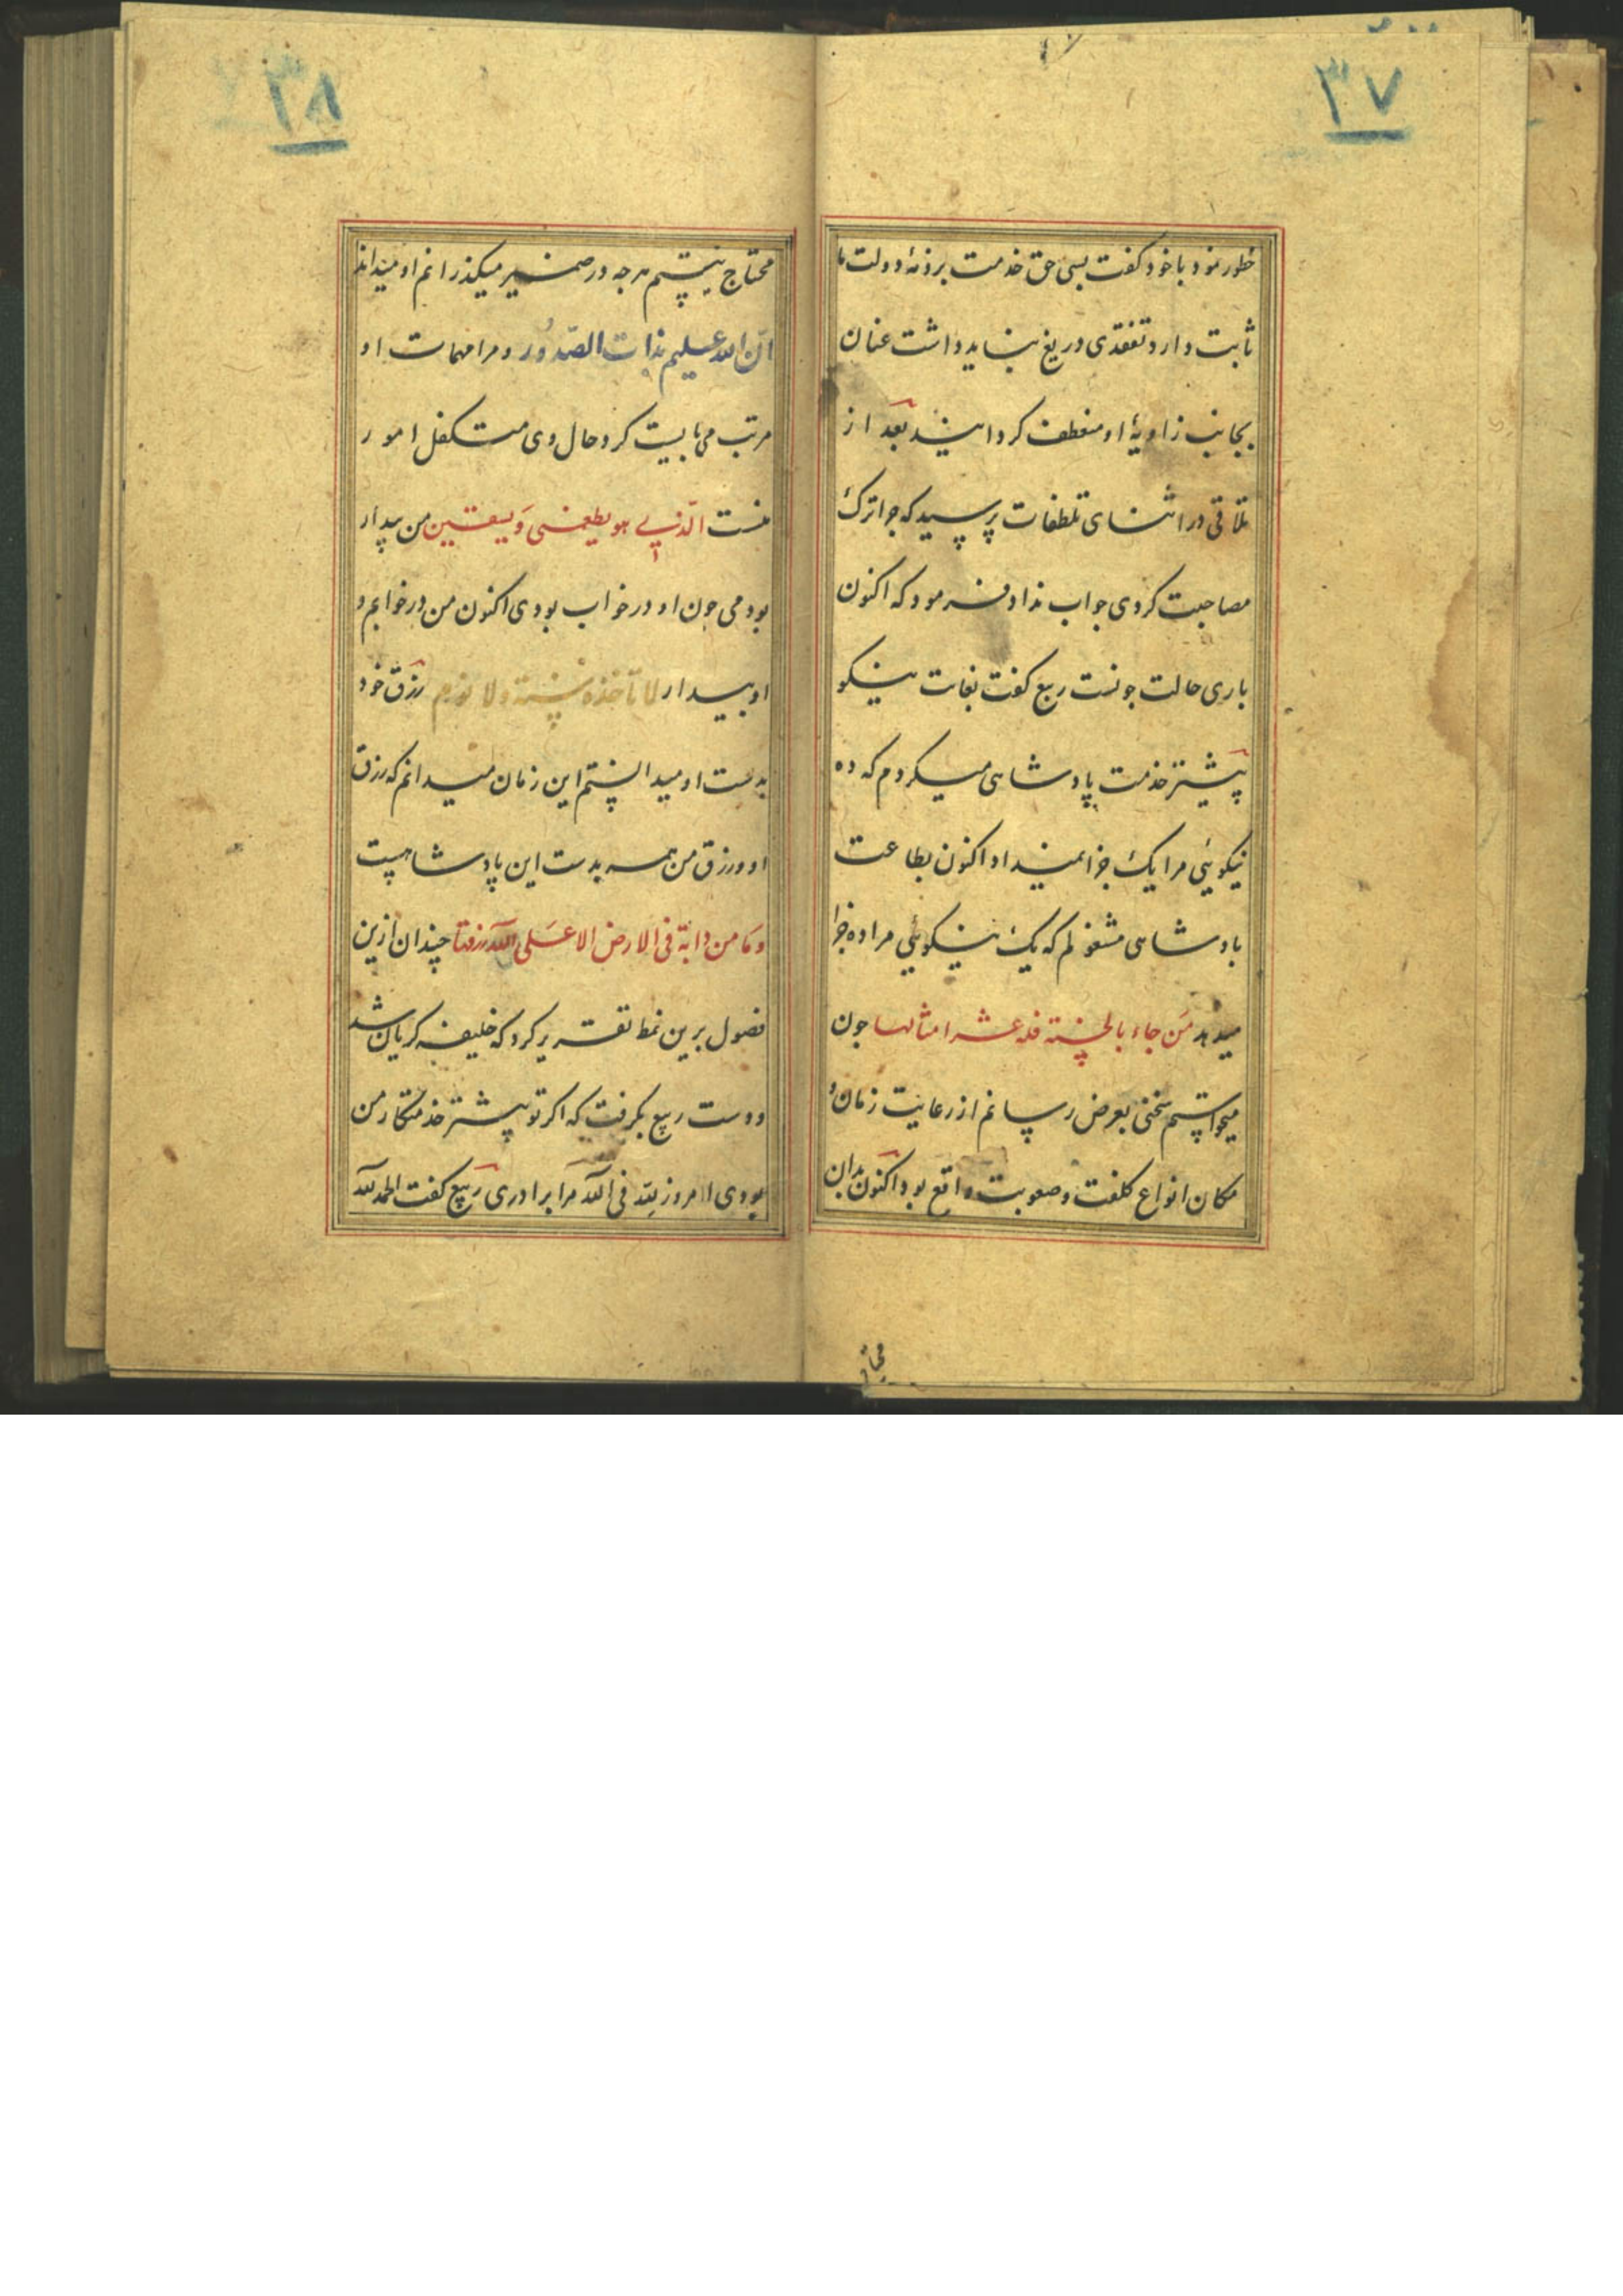 ۳۷
خطور نمود با خود گفت بسی حق خدمت بر ذمهٔ دولت ما
ثابت دارد تفقدی دریغ نباید داشت عنان
بجانب زاویهٔ او منعطف کردانید بعد از
تلاقی در اثنای تلطفات پرسید که جرا ترک
مصاحبت کردی جواب نداد فرمود که اکنون
باری حالت جونست ربیع گفت بغایت نیکو
پیشتر خدمت پادشاهی میکردم که ده
نیکویی مرا یک جزا نمیداد اکنون بطاعت
پادشاهی مشغولم که یک نیکویی مرا ده جزا
میدهد مَن جاء بالحسنة فله عشر امثالها جون
میخواستم سخنی بعرض رسانم از رعایت زمان و
مکان انواع کلفت و صعوبت واقع بود اکنون بدان
محتاج
۳۸
محتاج نیستم هرجه در ضمیر میکذرانم او میداند
انّ الله علیم بذات الصّدُور و مرا مهمات او
مرتب می بایست کرد حال وی متکفل امور
منست الّذی هو یطعمنی وَ یسقین من بیدار
بودمی جون او در خواب بودی اکنون من در خوابم و
او بیدار لا تأخذه سنة ولا نوم رزق خود
بدست او میدانستم این زمان میدانم که رزق
او و رزق من همه بدست این پادشاهست
وَمَا من دابّة فی الارض الا عَلی الله رزقها چندان ازین
فصول برین نمط تقریر کرد که خلیفه کریان شد
و دست ربیع بکرفت که اکر تو پیشتر خدمتکار من
بودی امروز لله فی الله مرا برادری ربیع کفت الحمد لله